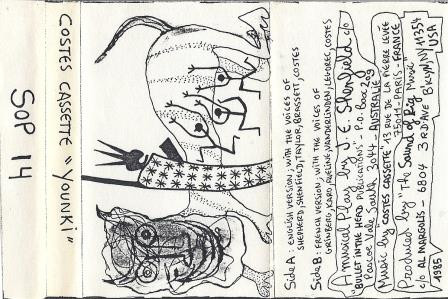 SOP 14
COSTES CASSETTE "YOUNKI"
Side A: ENGLISH VERSION; WITH THE VOICES OF
SHEPHERD, SHENFIELD, TAYLOR, BRASSETT, COSTES
Side B: FRENCH VERSION; WITH THE VOICES OF
GRINBERG, KAPO, AVELINE, VANDERLINDEN, LEFORES, COSTES
A musical Play by J. E. Shenfield c/o
"BULLET IN THE HEAD PUBLICATIONS" - P.O. Box 209
Pascoe Vale South 3044 - AUSTRALIE
Music by COSTES CASSETTE 13 RUE DE LA PIERRE LEVÉE
75011 - PARIS - FRANCE
Produced by "The Sound of Pig Music"
c/o AL MARGOLIS - 6804 3RD AVE B'KLYN, NY 11354
1985 USA